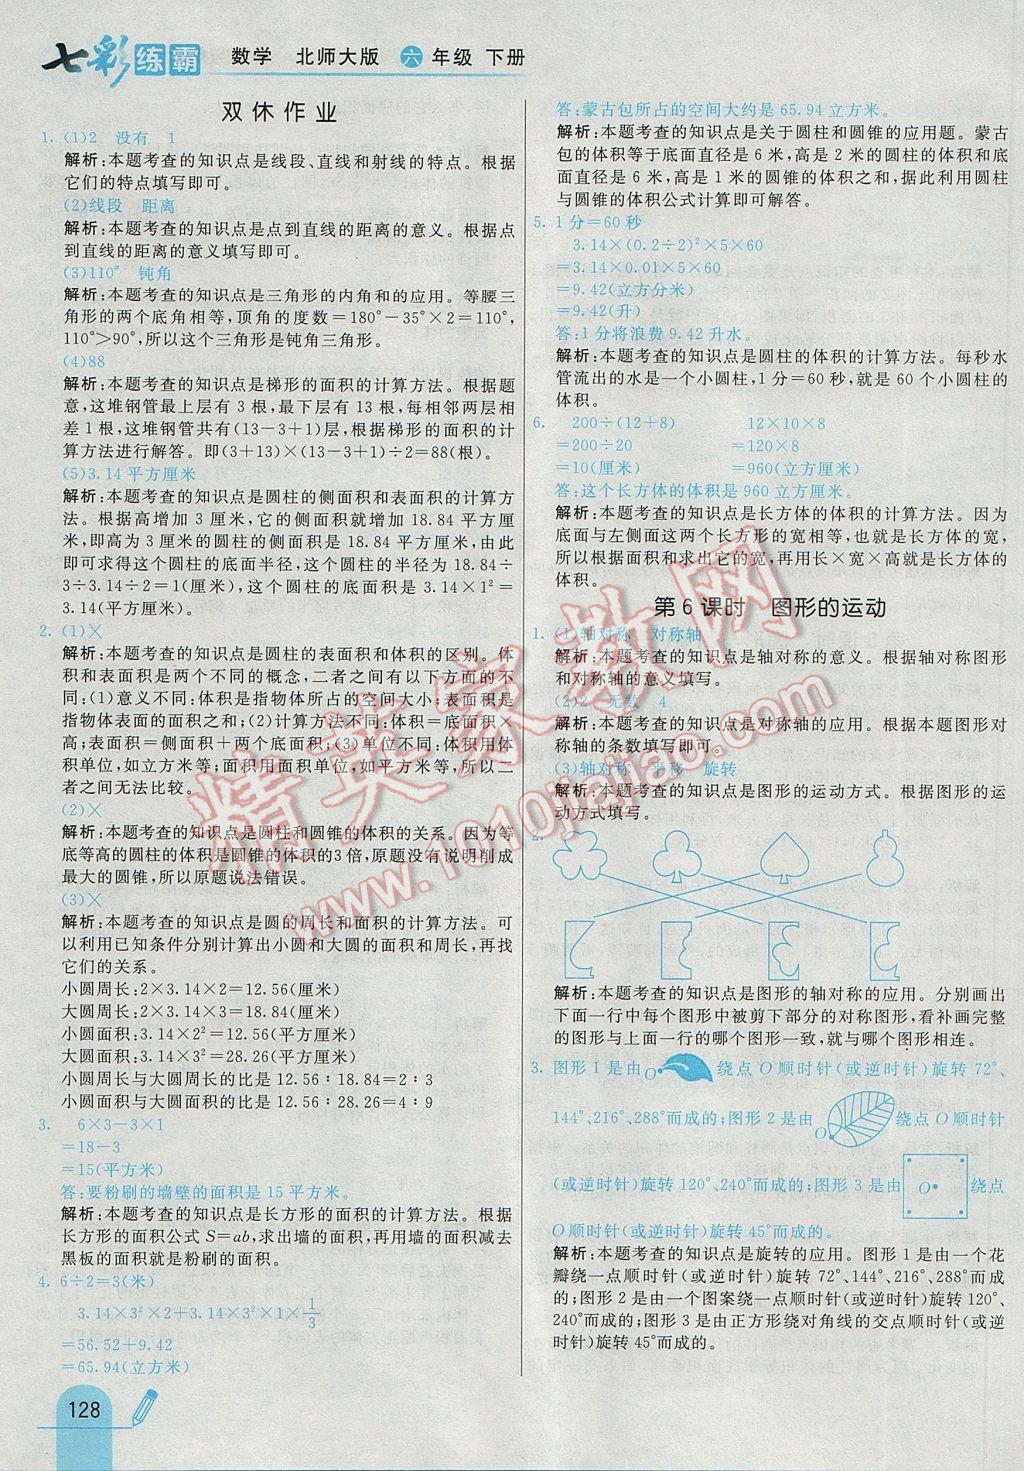 七彩练霸 数学 北师大版 六年级 下册
双休作业
1. (1)2 没有 1
解析:本题考查的知识点是线段、直线和射线的特点。根据
它们的特点填写即可。
(2)线段 距离
解析:本题考查的知识点是点到直线的距离的意义。根据点
到直线的距离的意义填写即可。
(3)110° 钝角
解析:本题考查的知识点是三角形的内角和的应用。等腰三
角形的两个底角相等,顶角的度数=180°-35°×2=110°,
110°>90°,所以这个三角形是钝角三角形。
(4)88
解析:本题考查的知识点是梯形的面积的计算方法。根据题
意,这堆钢管最上层有 3 根,最下层有 13 根,每相邻两层相
差 1 根,这堆钢管共有(13-3+1)层,根据梯形的面积的计
算方法进行解答。即(3+13)×(13-3+1)÷2=88(根)。
(5)3.14 平方厘米
解析:本题考查的知识点是圆柱的侧面积和表面积的计算方
法。根据高增加 3 厘米,它的侧面积就增加 18.84 平方厘
米,即高为 3 厘米的圆柱的侧面积是 18.84 平方厘米,由此
即可求得这个圆柱的底面半径,这个圆柱的半径为 18.84÷
3÷3.14÷2=1(厘米),这个圆柱的底面积是 3.14×1²=
3.14(平方厘米)。
2. (1)×
解析:本题考查的知识点是圆柱的表面积和体积的区别。体
积和表面积是两个不同的概念,二者之间有以下方面的不
同:(1)意义不同:体积是指物体所占的空间大小;表面积是
指物体表面的面积之和;(2)计算方法不同:体积=底面积×
高;表面积=侧面积+两个底面积;(3)单位不同:体积用体
积单位,如立方米等;面积用面积单位,如平方米等,所以二
者之间无法比较。
(2)×
解析:本题考查的知识点是圆柱和圆锥的体积的关系。因为等
底等高的圆柱的体积是圆锥的体积的3 倍,原题没有说明削成
最大的圆锥,所以原题说法错误。
(3)×
解析:本题考查的知识点是圆的周长和面积的计算方法。可
以利用已知条件分别计算出小圆和大圆的面积和周长,再找
它们的关系。
小圆周长:2×3.14×2=12.56(厘米)
大圆周长:2×3.14×3=18.84(厘米)
小圆面积:3.14×2²=12.56(平方厘米)
大圆面积:3.14×3²=28.26(平方厘米)
小圆周长与大圆周长的比是 12.56∶18.84=2∶3
小圆面积与大圆面积的比是 12.56∶28.26=4∶9
3. 6×3-3×1
=18-3
=15(平方米)
答:要粉刷的墙壁的面积是 15 平方米。
解析:本题考查的知识点是长方形的面积的计算方法。根据
长方形的面积公式 S=ab,求出墙的面积,再用墙的面积减去
黑板的面积就是粉刷的面积。
4. 6÷2=3(米)
3.14×3²×2+3.14×3²×1×1/3
=56.52+9.42
=65.94(立方米)
128
答:蒙古包所占的空间大约是 65.94 立方米。
解析:本题考查的知识点是关于圆柱和圆锥的应用题。蒙古
包的体积等于底面直径是 6 米,高是 2 米的圆柱的体积和底
面直径是 6 米,高是 1 米的圆锥的体积之和,据此利用圆柱
与圆锥的体积公式计算即可解答。
5. 1 分=60 秒
3.14×(0.2÷2)²×5×60
=3.14×0.01×5×60
=9.42(立方分米)
=9.42(升)
答:1 分将浪费 9.42 升水。
解析:本题考查的知识点是圆柱的体积的计算方法。每秒水
管流出的水是一个小圆柱,1 分=60 秒,就是 60 个小圆柱的
体积。
6. 200÷(12+8) 12×10×8
=200÷20 =120×8
=10(厘米) =960(立方厘米)
答:这个长方体的体积是 960 立方厘米。
解析:本题考查的知识点是长方体的体积的计算方法。因为
底面与左侧面这两个长方形的宽相等,也就是长方体的宽,
所以根据面积和求出它的宽,再用长×宽×高就是长方体的
体积。
第 6 课时 图形的运动
1. (1)轴对称 对称轴
解析:本题考查的知识点是轴对称的意义。根据轴对称图形
和对称轴的意义填写。
(2)2 无数 4
解析:本题考查的知识点是对称轴的应用。根据本题图形对
称轴的条数填写即可。
(3)轴对称 平移 旋转
解析:本题考查的知识点是图形的运动方式。根据图形的运
动方式填写。
2.
解析:本题考查的知识点是图形的轴对称的应用。分别画出
下面一行中每个图形中被剪下部分的对称图形,看补画完整
的图形与上面一行的哪个图形一致,就与哪个图形相连。
3. 图形 1 是由 O 绕点 O 顺时针(或逆时针)旋转 72°、
144°、216°、288°而成的;图形 2 是由 O 绕点 O 顺时针
(或逆时针)旋转 120°、240°而成的;图形 3 是由 O 绕点
O 顺时针(或逆时针)旋转 45°而成的。
解析:本题考查的知识点是旋转的应用。图形 1 是由一个花
瓣绕一点顺时针(或逆时针)旋转 72°、144°、216°、288°而成
的;图形 2 是由一个图案绕一点顺时针(或逆时针)旋转 120°、
240°而成的;图形 3 是由正方形绕对角线的交点顺时针(或逆
时针)旋转 45°而成的。
精英家教网
www.1010jiajiao.com